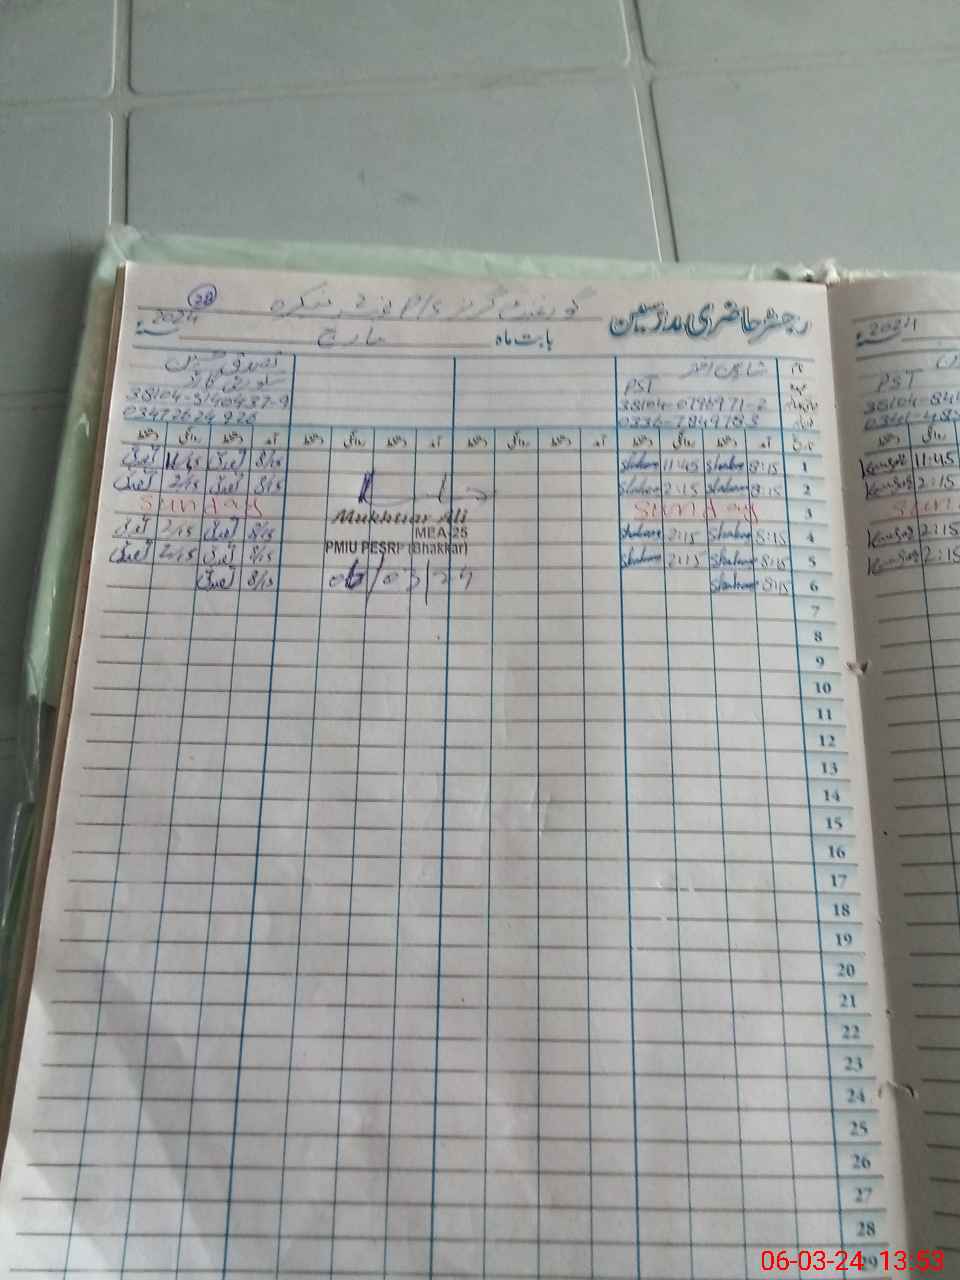 رجسٹر حاضری مدرسین
28
2024
بابت ماہ مارچ
2024
شاہین اختر
PST
38104-0796971-2
0336-7849783
38104-5140437-9
03472624926
PST
38104-84
آمد دستخط روانگی دستخط آمد دستخط روانگی دستخط آمد دستخط روانگی دستخط آمد دستخط روانگی دستخط
1 8:15 Shaheen 11:45 Shaheen 8/15 11/45 11:45
2 8:15 Shaheen 2:15 Shaheen 8/15 2/15 2:15
3 Sunday Sunday
4 8:15 Shaheen 2:15 Shaheen 8/15 2/15 2:15
5 8:15 Shaheen 2:15 Shaheen 8/15 2/15 2:15
6 8:15 Shaheen 8/15
Mukhtiar Ali
MEA-25
PMIU PESRP (Bhakkar)
06/03/24
7
8
9
10
11
12
13
14
15
16
17
18
19
20
21
22
23
24
25
26
27
28
29
06-03-24 13:53